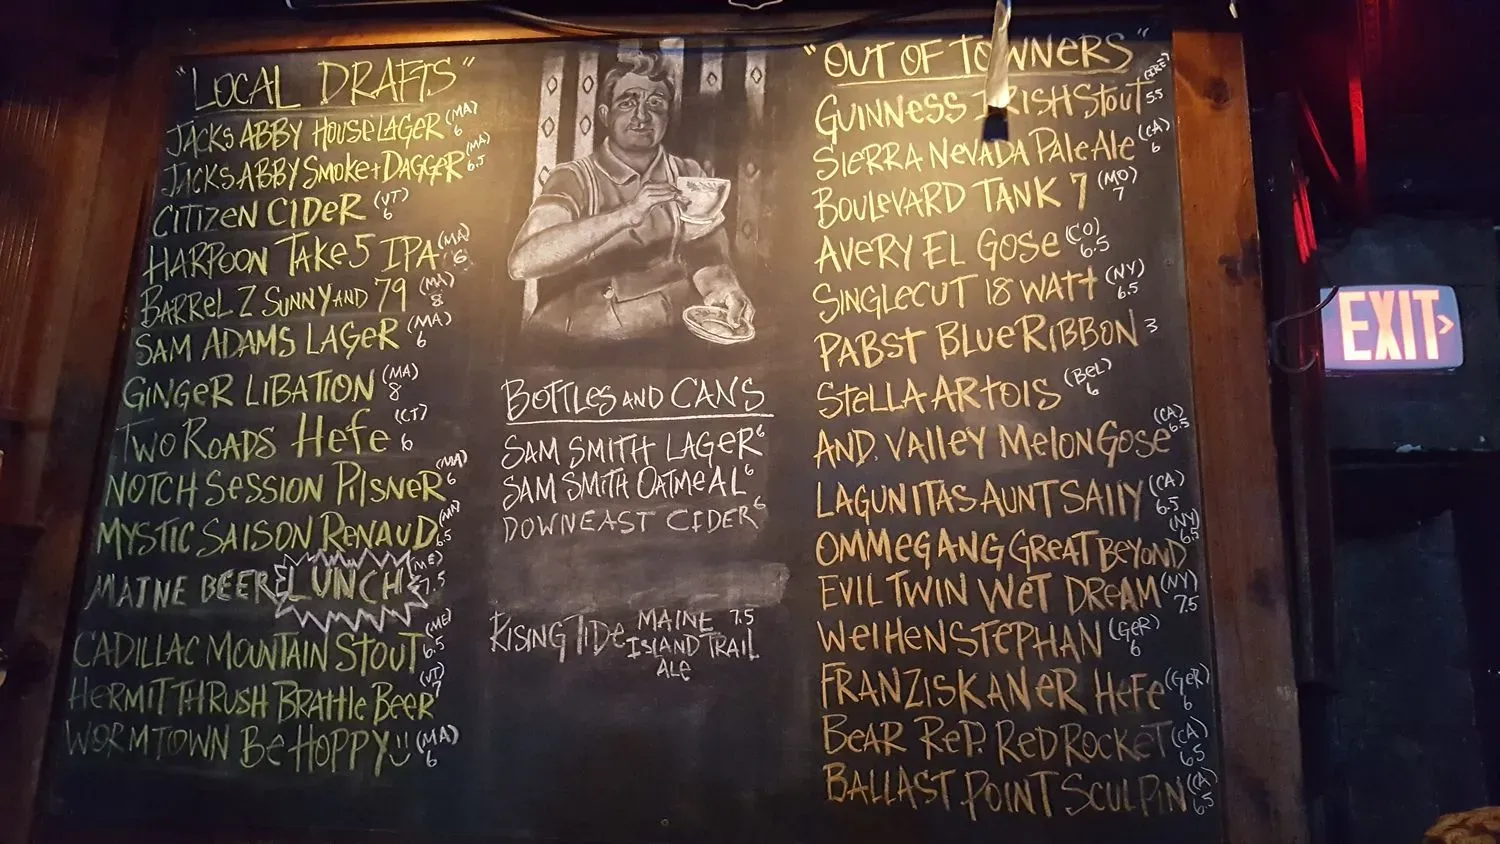 "LOCAL DRAFTS"
JACKS ABBY HOUSE LAGER (MA) 6
JACKS ABBY SMOKE + DAGGER (MA) 6.5
CITIZEN CIDER (VT) 6
HARPOON TAKE 5 IPA (MA) 6
BARREL Z SUNNY AND 79 (MA) 8
SAM ADAMS LAGER (MA) 6
GINGER LIBATION (MA) 8
TWO ROADS HEFE (CT) 6
NOTCH SESSION PILSNER (MA) 6
MYSTIC SAISON RENAUD 6.5
MAINE BEER LUNCH (ME) 7.5
CADILLAC MOUNTAIN STOUT (ME) 6.5
HERMIT THRUSH BRATTLE BEER (VT) 7
WORMTOWN BE HOPPY :) (MA) 6
BOTTLES AND CANS
SAM SMITH LAGER 6
SAM SMITH OATMEAL 6
DOWNEAST CIDER 6
RISING TIDE MAINE 7.5
ISLAND TRAIL
ALE
"OUT OF TOWNERS"
GUINNESS IRISH STOUT (IRE) 5.5
SIERRA NEVADA PALE ALE (CA) 6
BOULEVARD TANK 7 (MO) 7
AVERY EL GOSE (CO) 6.5
SINGLECUT 18 WATT (NY) 6.5
PABST BLUE RIBBON 3
STELLA ARTOIS (BEL) 6
AND. VALLEY MELON GOSE (CA) 6.5
LAGUNITAS AUNT SALLY (CA) 6.5
OMMEGANG GREAT BEYOND (NY) 6.5
EVIL TWIN WET DREAM (NY) 7.5
WEIHENSTEPHAN (GER) 6
FRANZISKANER HEFE (GER) 6
BEAR REP. RED ROCKET (CA) 6.5
BALLAST POINT SCULPIN (CA) 6.5
EXIT